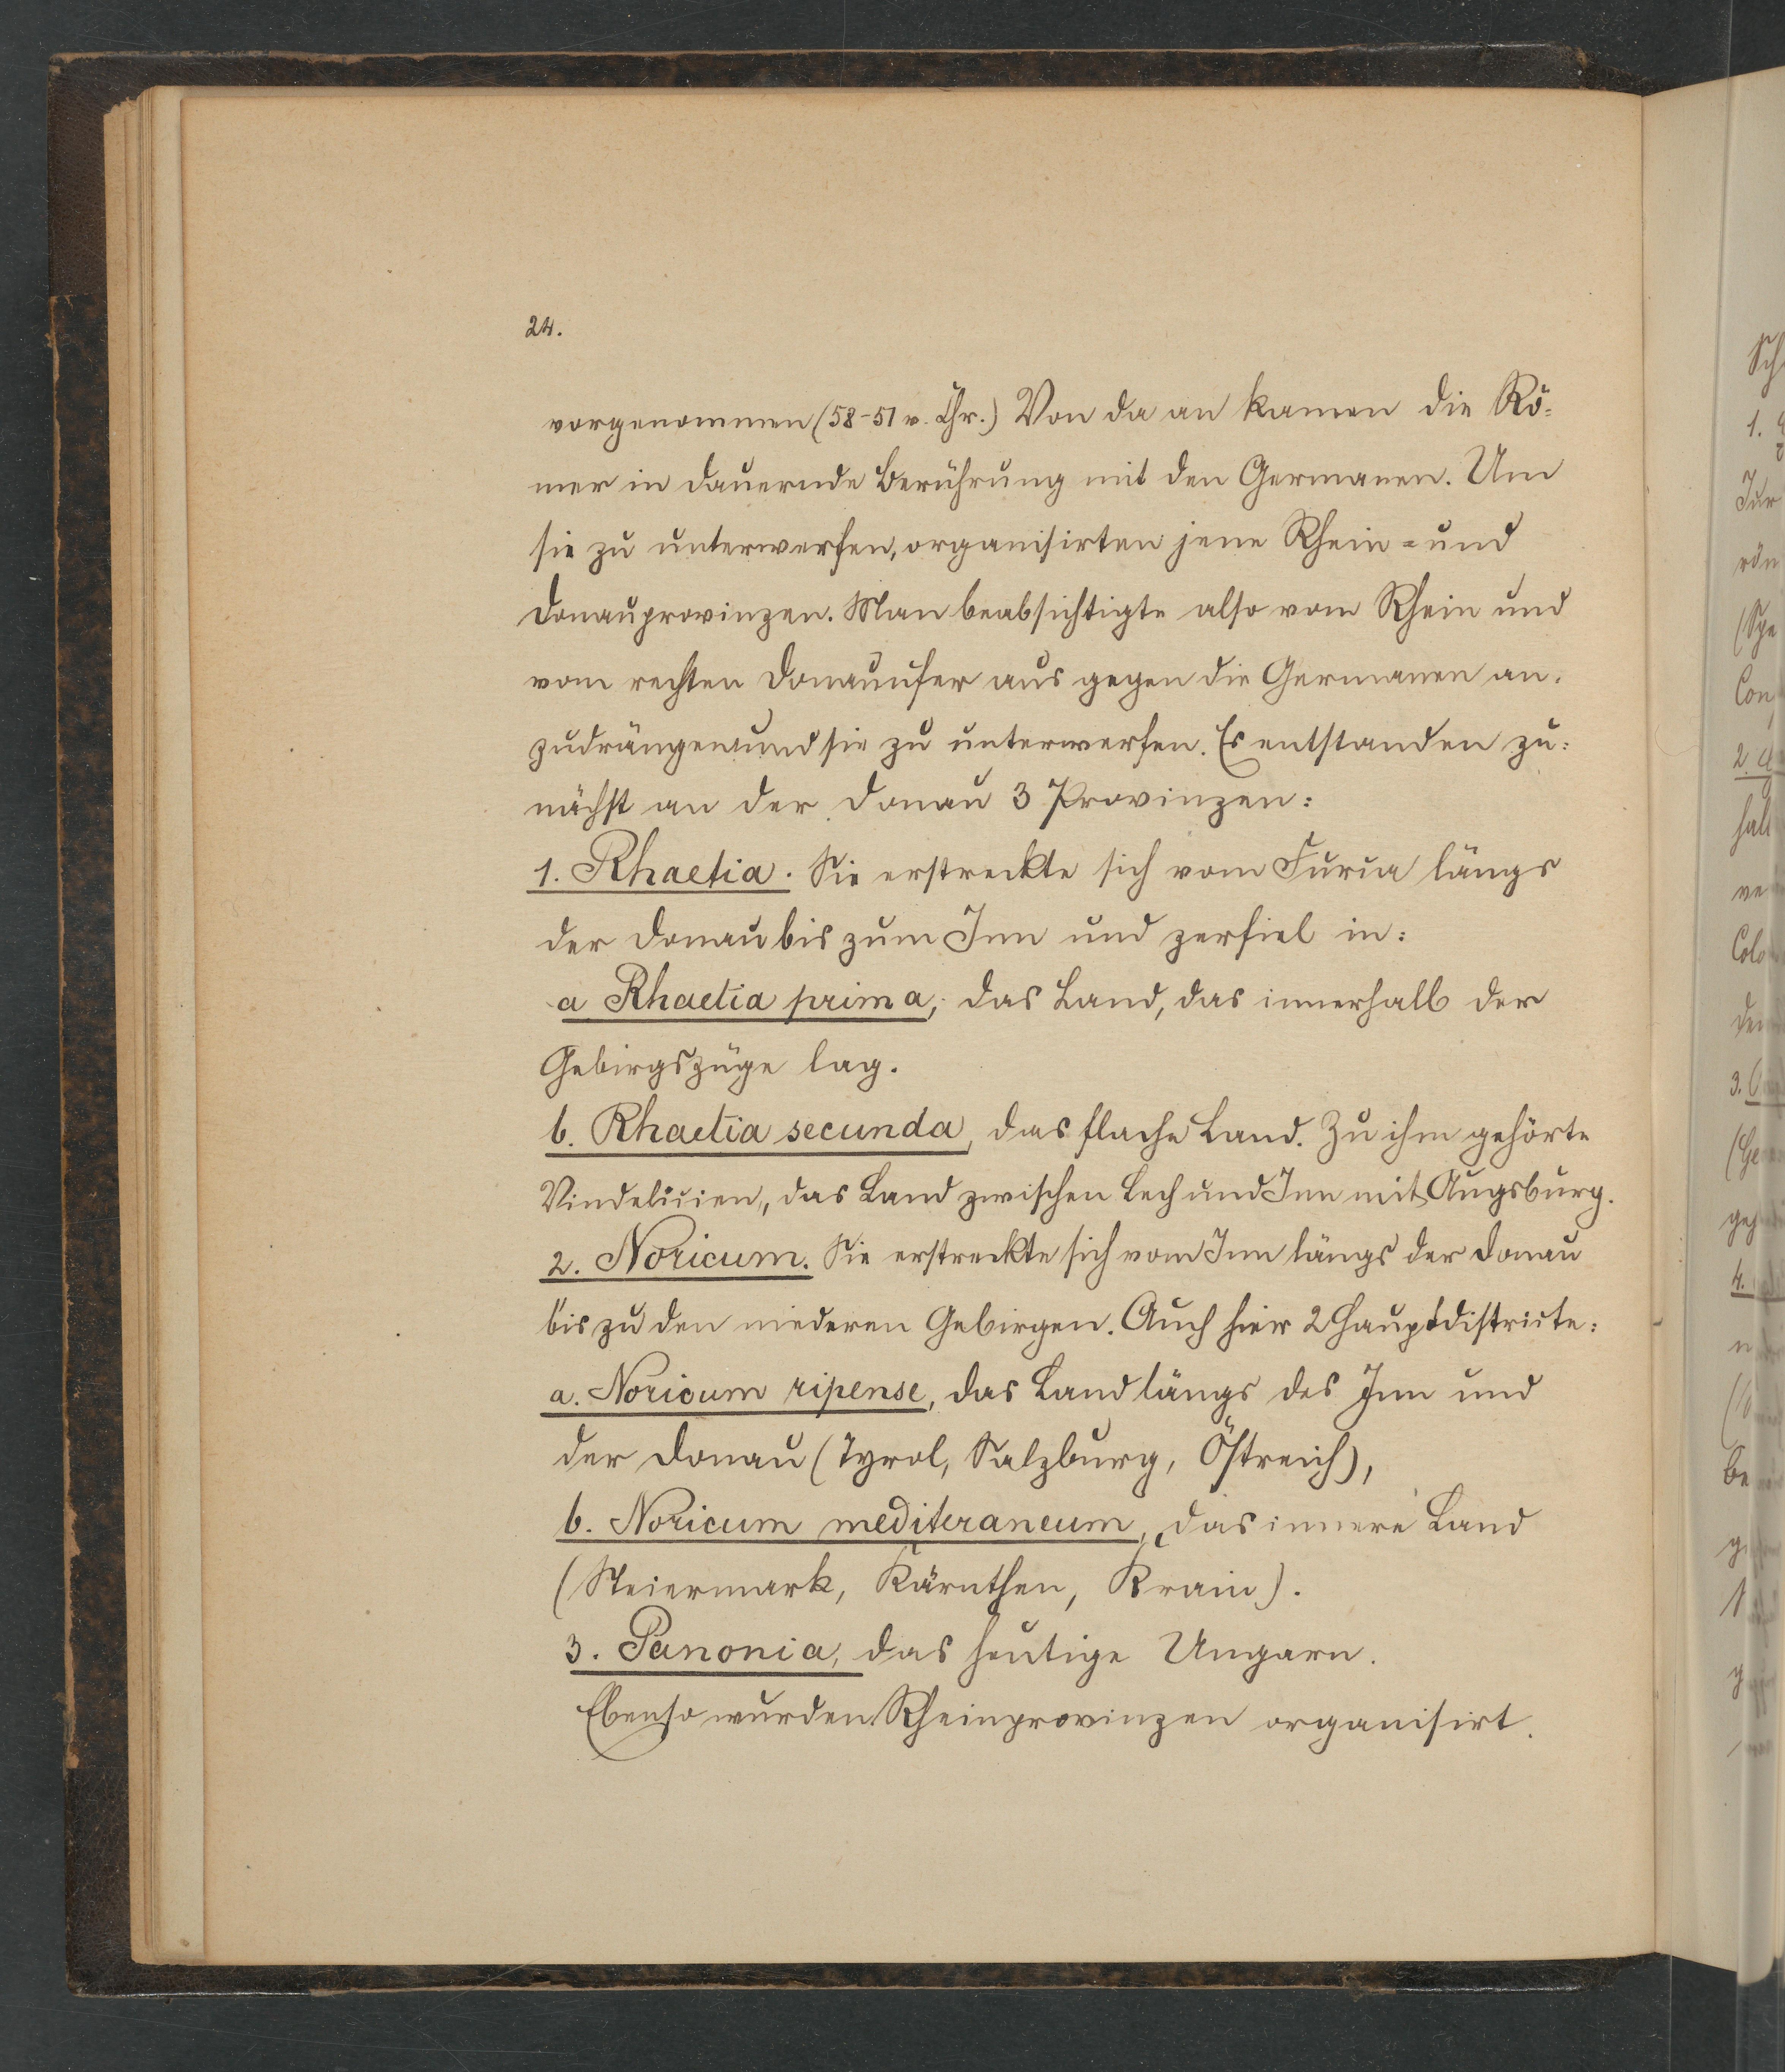 24.
vorgenommen (58-51 v. Chr.) Von da an kamen die Rö-
mer in dauernde Berührung mit den Germanen. Um
sie zu unterwerfen, organisirten jene Rhein- und
Donauprovinzen. Man beabsichtigte also vom Rhein und
vom rechten Donauufer aus gegen die Germanen an-
zudrängen und sie zu unterwerfen. Es entstanden zu-
nächst an der Donau 3 Provinzen:
1. Rhaetia. Sie erstreckte sich vom längs
der Donau bis zum Inn und zerfiel in:
a Rhaetia prima, das Land, das innerhalb der
Gebirgszüge lag.
b. Rhaetia secunda, das flache Land. Zu ihm gehörte
Vindelicien, das Land zwischen Lech und Inn mit Augsburg.
2. Noricum. Sie erstreckte sich vom Inn längs der Donau
bis zu den niederen Gebirgen. Auch hier 2 Hauptdistricte:
a. Noricum ripense, das Land längs des Inn und
der Donau (Tyrol, Salzburg, Östreich),
b. Noricum mediteraneum, das innere Land
(Steiermark, Kärnthen, Krain).
3. Panonia, das heutige Ungarn.
Ebenso wurden Rheinprovinzen organisirt.